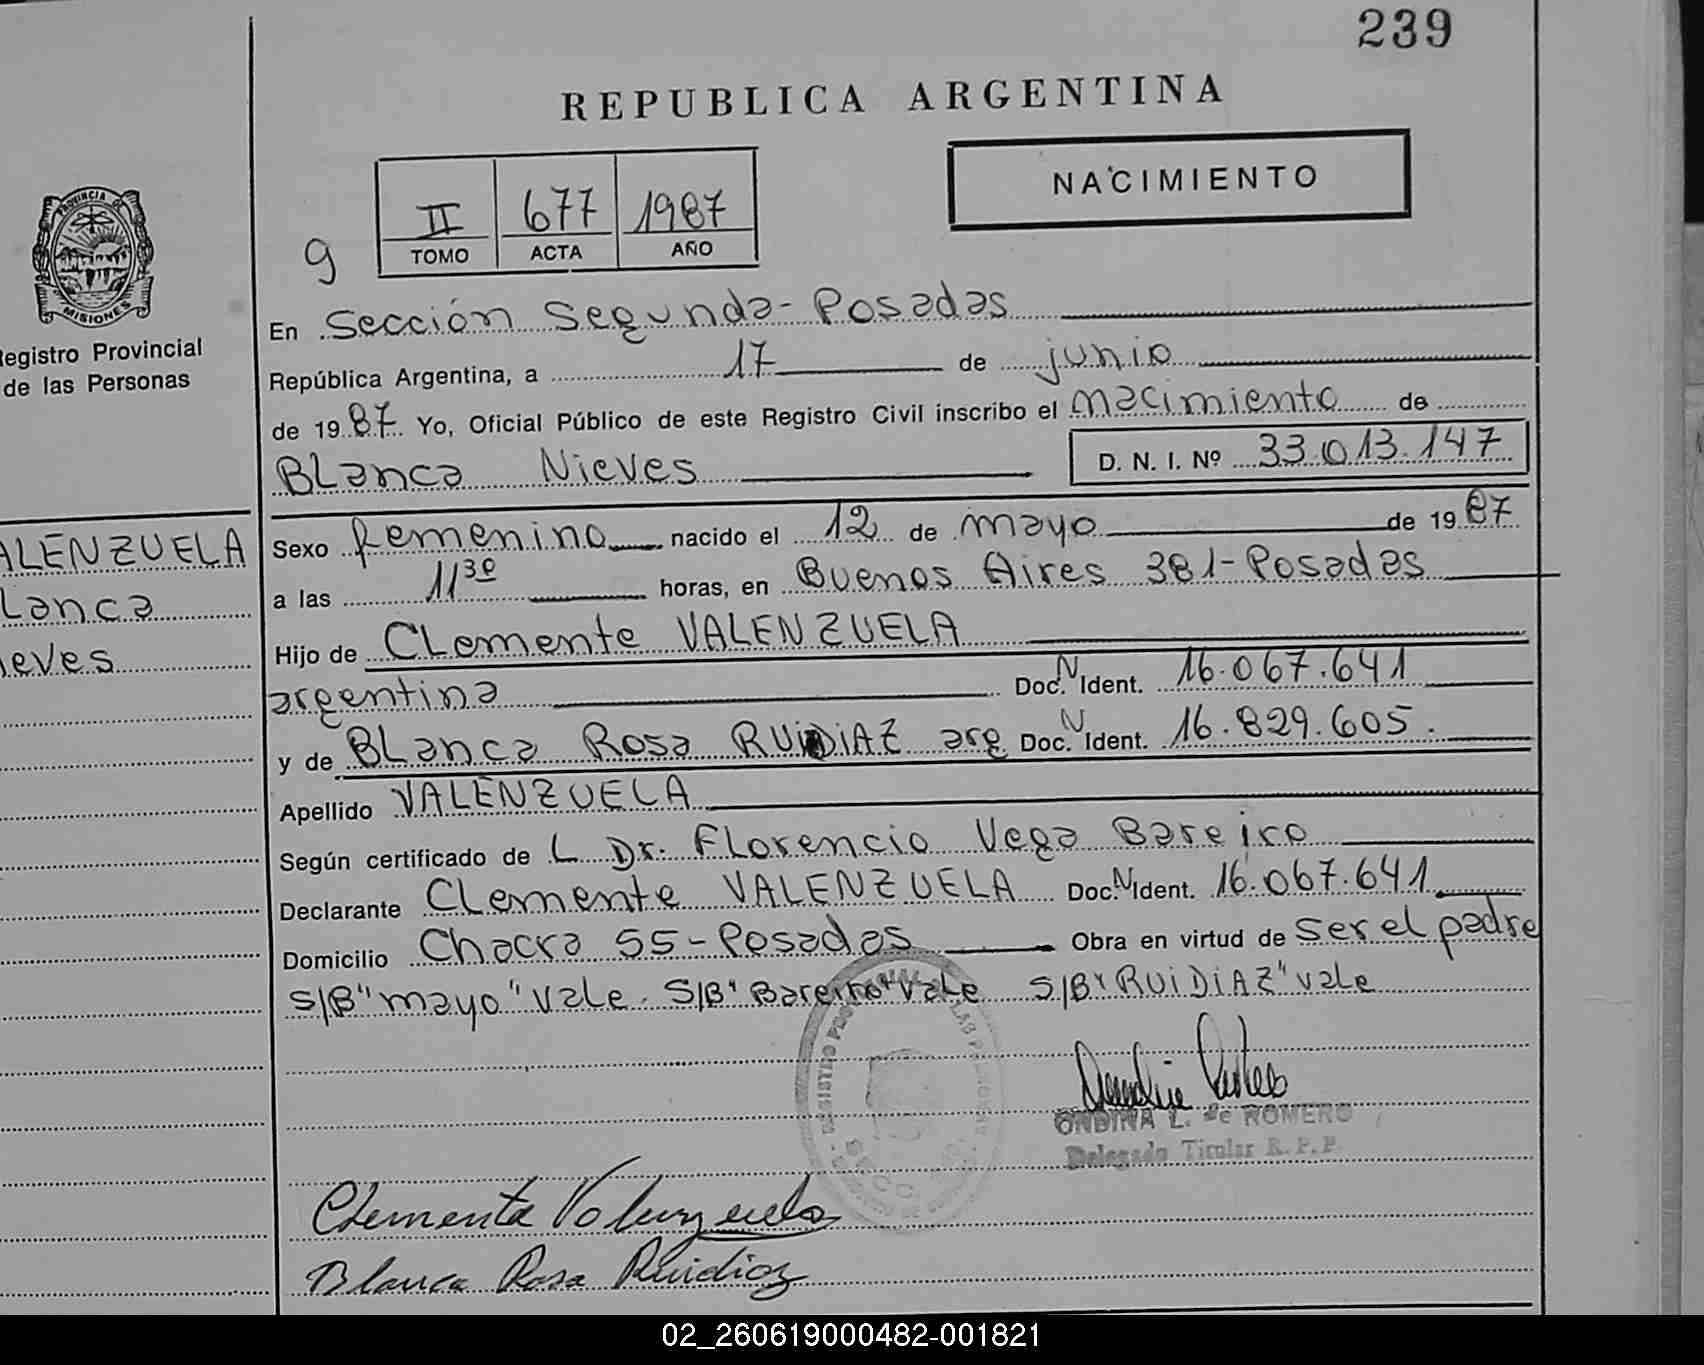 239
REPUBLICA ARGENTINA
NACIMIENTO
II 677 1987
TOMO ACTA AÑO
g
PROVINCIA DE
MISIONES
Registro Provincial
de las Personas
VALENZUELA
Blanca
Nieves
En Sección Segunda - Posadas
República Argentina, a 17 de junio
de 1987 Yo, Oficial Público de este Registro Civil inscribo el nacimiento de
Blanca Nieves D. N. I. Nº 33.013.147
Sexo femenino nacido el 12 de mayo de 1987
a las 11 30 horas, en Buenos Aires 381 - Posadas
Hijo de Clemente VALENZUELA
argentina Doc. N Ident. 16.067.641
y de Blanca Rosa RUiDiAZ arg Doc. N Ident. 16.829.605.
Apellido VALENZUELA
Según certificado de L Dr. Florencio Vega Bareiro
Declarante Clemente VALENZUELA Doc. N Ident. 16.067.641
Domicilio Chacra 55 - Posadas Obra en virtud de ser el padre
S/B "mayo" Vale. S/B "Bareiro" Vale S/B "RUiDiAZ" Vale
ONDINA L. de ROMERO
Delegado Titular R. P. P.
Clemente Valenzuela
Blanca Rosa Ruidiaz
02_260619000482-001821